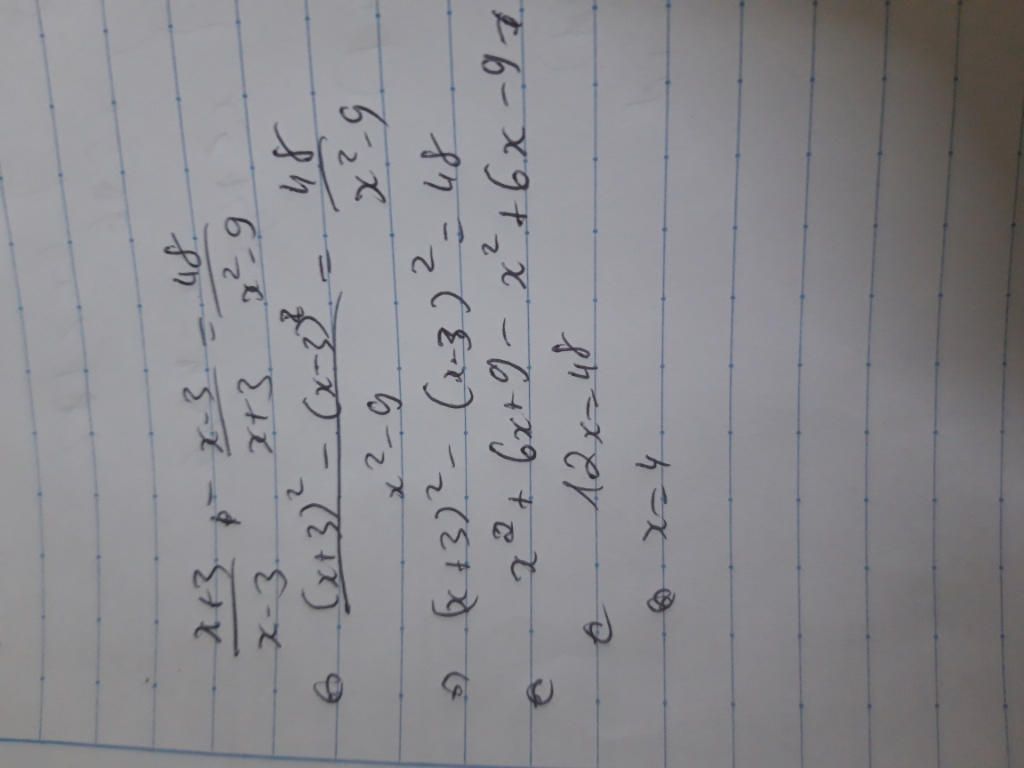 x+3/x-3 - x-3/x+3 = 48/x²-9
⇔ (x+3)² - (x-3)²/x²-9 = 48/x²-9
⇒ (x+3)² - (x-3)² = 48
⇔ x² + 6x + 9 - x² + 6x - 9 =
⇔ 12x = 48
⇔ x = 4